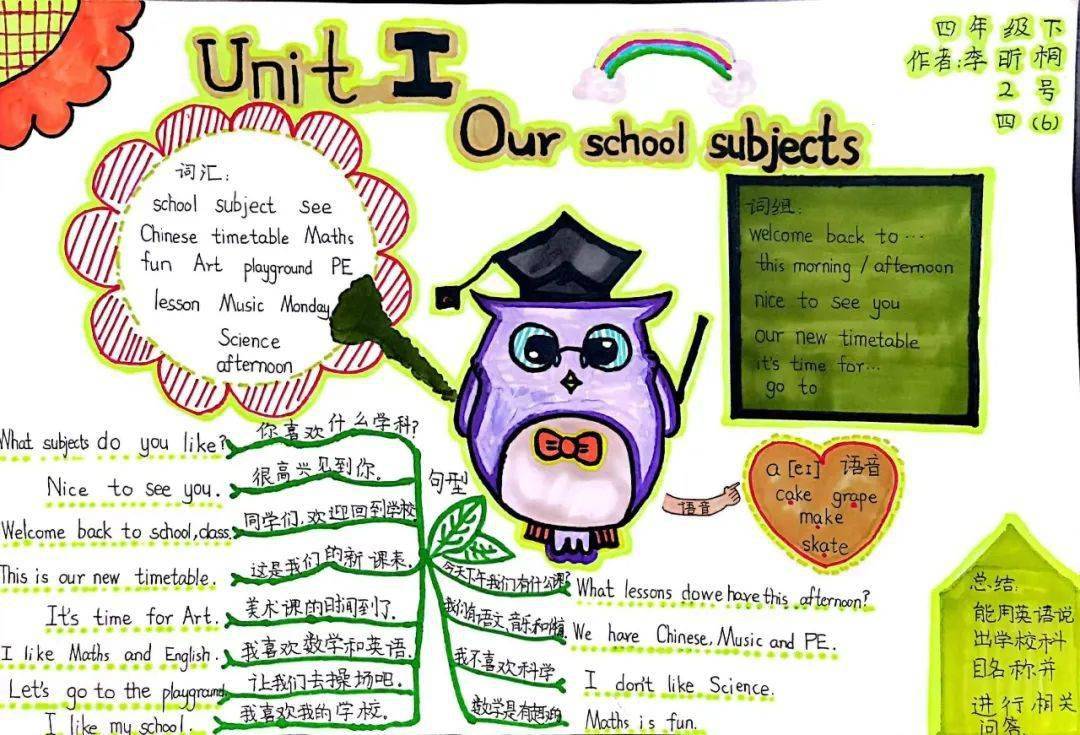 Unit 1
Our school subjects
四年级下
作者:李昕桐
2 号
四(6)
词汇:
school subject see
Chinese timetable Maths
fun Art playground PE
lesson Music Monday
Science
afternoon
词组:
welcome back to …
this morning / afternoon
nice to see you
our new timetable
it's time for…
go to
a [eɪ] 语音
cake grape
make
skate
语音
句型
What subjects do you like?
你喜欢什么学科?
Nice to see you.
很高兴见到你.
Welcome back to school,class.
同学们,欢迎回到学校
This is our new timetable.
这是我们的新课表.
It's time for Art.
美术课的时间到了.
I like Maths and English.
我喜欢数学和英语.
Let's go to the playground.
让我们去操场吧.
I like my school.
我喜欢我的学校.
今天下午我们有什么课?
What lessons do we have this afternoon?
我们有语文,音乐和体育
We have Chinese, Music and PE.
我不喜欢科学
I don't like Science.
数学是有趣的
Maths is fun.
总结:
能用英语说
出学校科
目名称并
进行相关
问答.